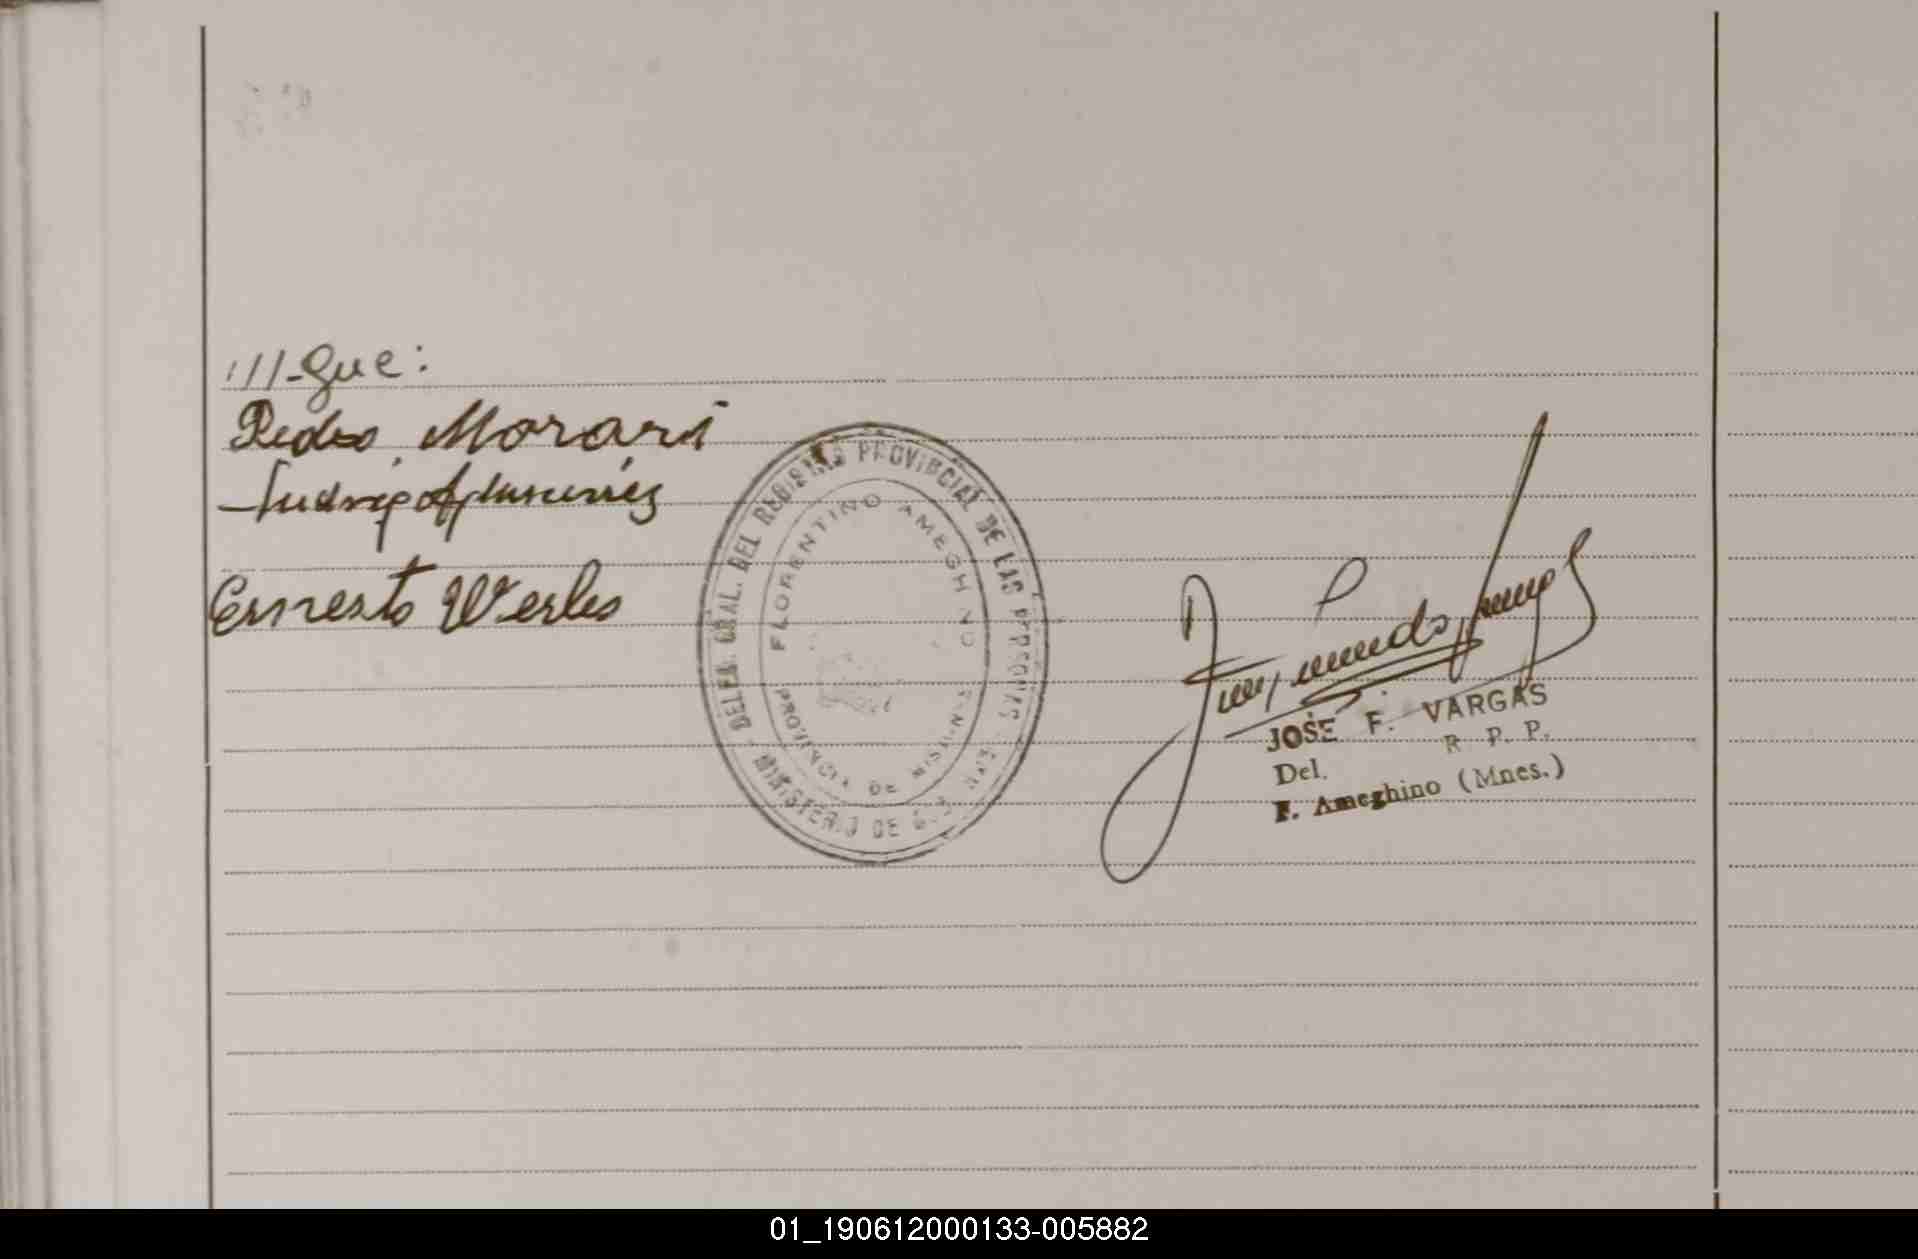 ///-que:
Pedro Morari
Ernesto Werles
DELEG. GRAL. DEL REGISTRO PROVINCIAL DE LAS PERSONAS
FLORENTINO AMEGHINO
PROVINCIA DE MISIONES
MINISTERIO DE
JOSÉ F. VARGAS
Del. R. P. P.
F. Ameghino (Mnes.)
01_190612000133-005882